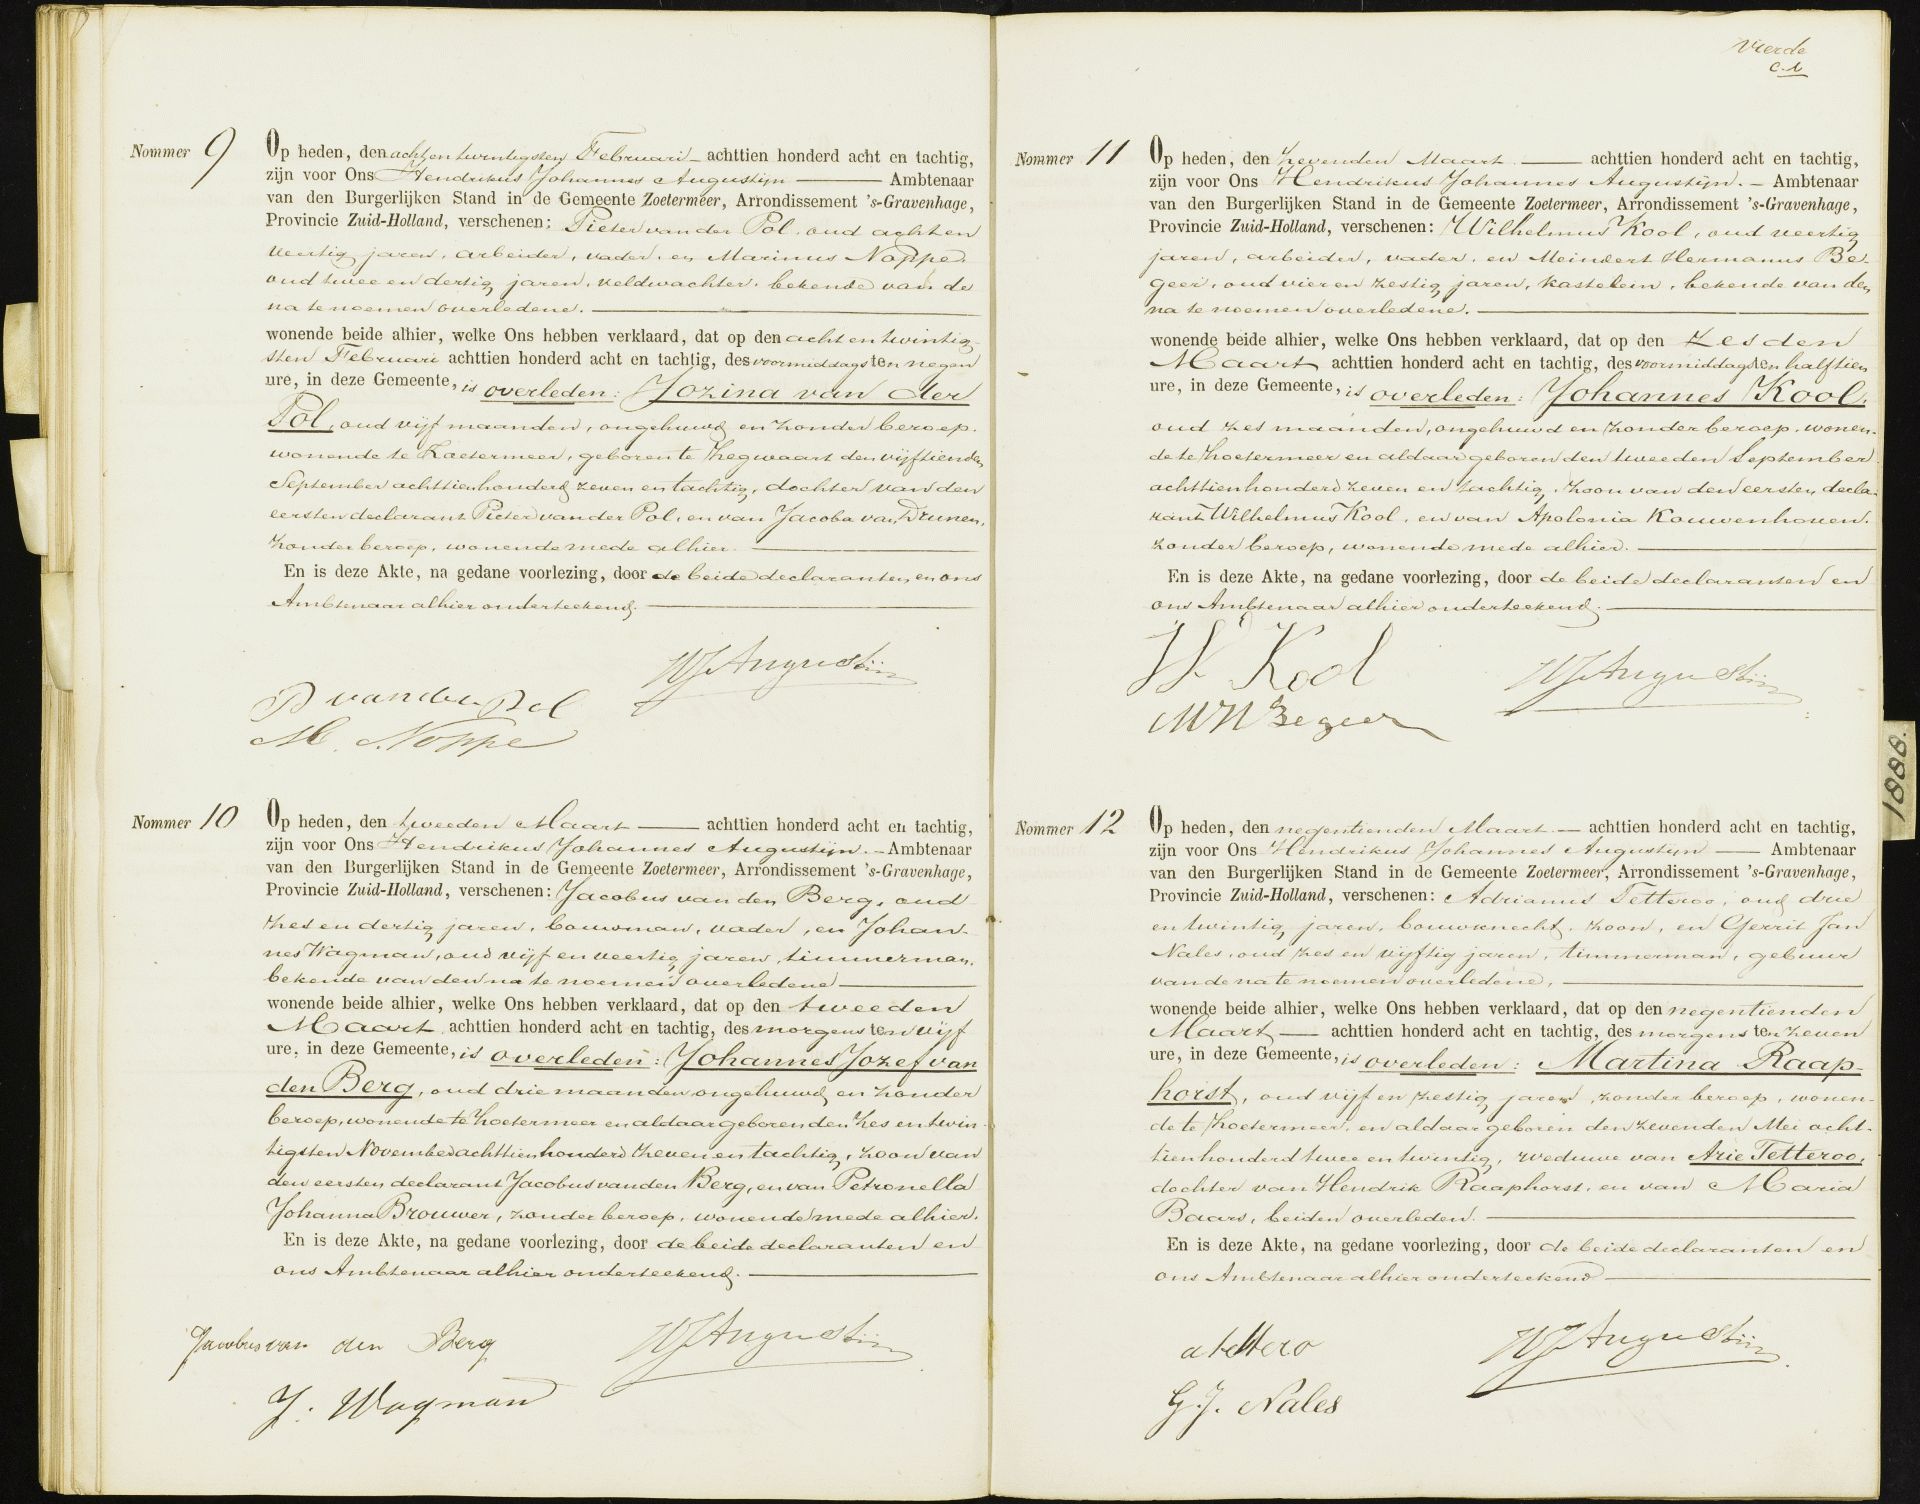 Nommer 9
Op heden, den achtentwintigsten Februari achttien honderd acht en tachtig,
zijn voor Ons Hendrikus Johannes Augustijn Ambtenaar
van den Burgerlijken Stand in de Gemeente Zoetermeer, Arrondissement 's-Gravenhage,
Provincie Zuid-Holland, verschenen: Pieter van der Pol, oud acht en
veertig jaren, arbeider, vader, en Marinus Noppe,
oud twee en dertig jaren, veldwachter, bekende van de
na te noemen overledene.
wonende beide alhier, welke Ons hebben verklaard, dat op den achtentwintig-
sten Februari achttien honderd acht en tachtig, des voormiddags ten negen
ure, in deze Gemeente, is overleden: Jozina van der
Pol, oud vijf maanden, ongehuwd en zonder beroep,
wonende te Zoetermeer, geboren te Zegwaart den vijftienden
September achttienhonderd zeven en tachtig, dochter van den
eersten declarant Pieter van der Pol, en van Jacoba van Drunen,
zonder beroep, wonende mede alhier.
En is deze Akte, na gedane voorlezing, door de beide declaranten en ons
Ambtenaar alhier onderteekend.
HJAugustijn
P van der Pol
M. Noppe
Nommer 10
Op heden, den tweeden Maart achttien honderd acht en tachtig,
zijn voor Ons Hendrikus Johannes Augustijn. Ambtenaar
van den Burgerlijken Stand in de Gemeente Zoetermeer, Arrondissement 's-Gravenhage,
Provincie Zuid-Holland, verschenen: Jacobus van den Berg, oud
zes en dertig jaren, bouwman, vader, en Johan-
nes Wagman, oud vijf en veertig jaren, timmerman,
bekende van den na te noemen overledene
wonende beide alhier, welke Ons hebben verklaard, dat op den tweeden
Maart achttien honderd acht en tachtig, des morgens ten vijf
ure, in deze Gemeente, is overleden: Johannes Jozef van
den Berg, oud drie maanden ongehuwd en zonder
beroep, wonende te Zoetermeer en aldaar geboren den zes en twin-
tigsten November achttienhonderd zeven en tachtig, zoon van
den eersten declarant Jacobus van den Berg, en van Petronella
Johanna Brouwer, zonder beroep, wonende mede alhier.
En is deze Akte, na gedane voorlezing, door de beide declaranten en
ons Ambtenaar alhier onderteekend.
Jacobus van den Berg
HJAugustijn
J. Wagman
Vierde
Nommer 11
Op heden, den zevenden Maart achttien honderd acht en tachtig,
zijn voor Ons Hendrikus Johannes Augustijn. Ambtenaar
van den Burgerlijken Stand in de Gemeente Zoetermeer, Arrondissement 's-Gravenhage,
Provincie Zuid-Holland, verschenen: Wilhelmus Kool, oud veertig
jaren, arbeider, vader, en Meindert Hermanus Be-
geer, oud vier en zestig jaren, kastelein, bekende van den
na te noemen overledene.
wonende beide alhier, welke Ons hebben verklaard, dat op den zesden
Maart achttien honderd acht en tachtig, des voormiddags ten half tien
ure, in deze Gemeente, is overleden: Johannes Kool,
oud zes maanden, ongehuwd en zonder beroep, wonen-
de te Zoetermeer en aldaar geboren den tweeden September
achttienhonderd zeven en tachtig, zoon van den eersten decla-
rant Wilhelmus Kool, en van Apolonia Kouwenhoven,
zonder beroep, wonende mede alhier.
En is deze Akte, na gedane voorlezing, door de beide declaranten en
ons Ambtenaar alhier onderteekend.
W Kool
HJAugustijn
MHBegeer
Nommer 12
Op heden, den negentienden Maart. achttien honderd acht en tachtig,
zijn voor Ons Hendrikus Johannes Augustijn Ambtenaar
van den Burgerlijken Stand in de Gemeente Zoetermeer, Arrondissement 's-Gravenhage,
Provincie Zuid-Holland, verschenen: Adrianus Tetteroo, oud drie
en twintig jaren, bouwknecht, zoon, en Gerrit Jan
Nales, oud zes en vijftig jaren, timmerman, gebuur
van de na te noemen overledene,
wonende beide alhier, welke Ons hebben verklaard, dat op den negentienden
Maart achttien honderd acht en tachtig, des morgens ten zeven
ure, in deze Gemeente, is overleden: Martina Raap-
horst, oud vijf en zestig jaren, zonder beroep, wonen-
de te Zoetermeer, en aldaar geboren den zevenden Mei acht-
tienhonderd twee en twintig, weduwe van Arie Tetteroo,
dochter van Hendrik Raaphorst, en van Maria
Baars, beiden overleden.
En is deze Akte, na gedane voorlezing, door de beide declaranten en
ons Ambtenaar alhier onderteekend
a tettero
HJAugustijn
G.J. Nales
1888.